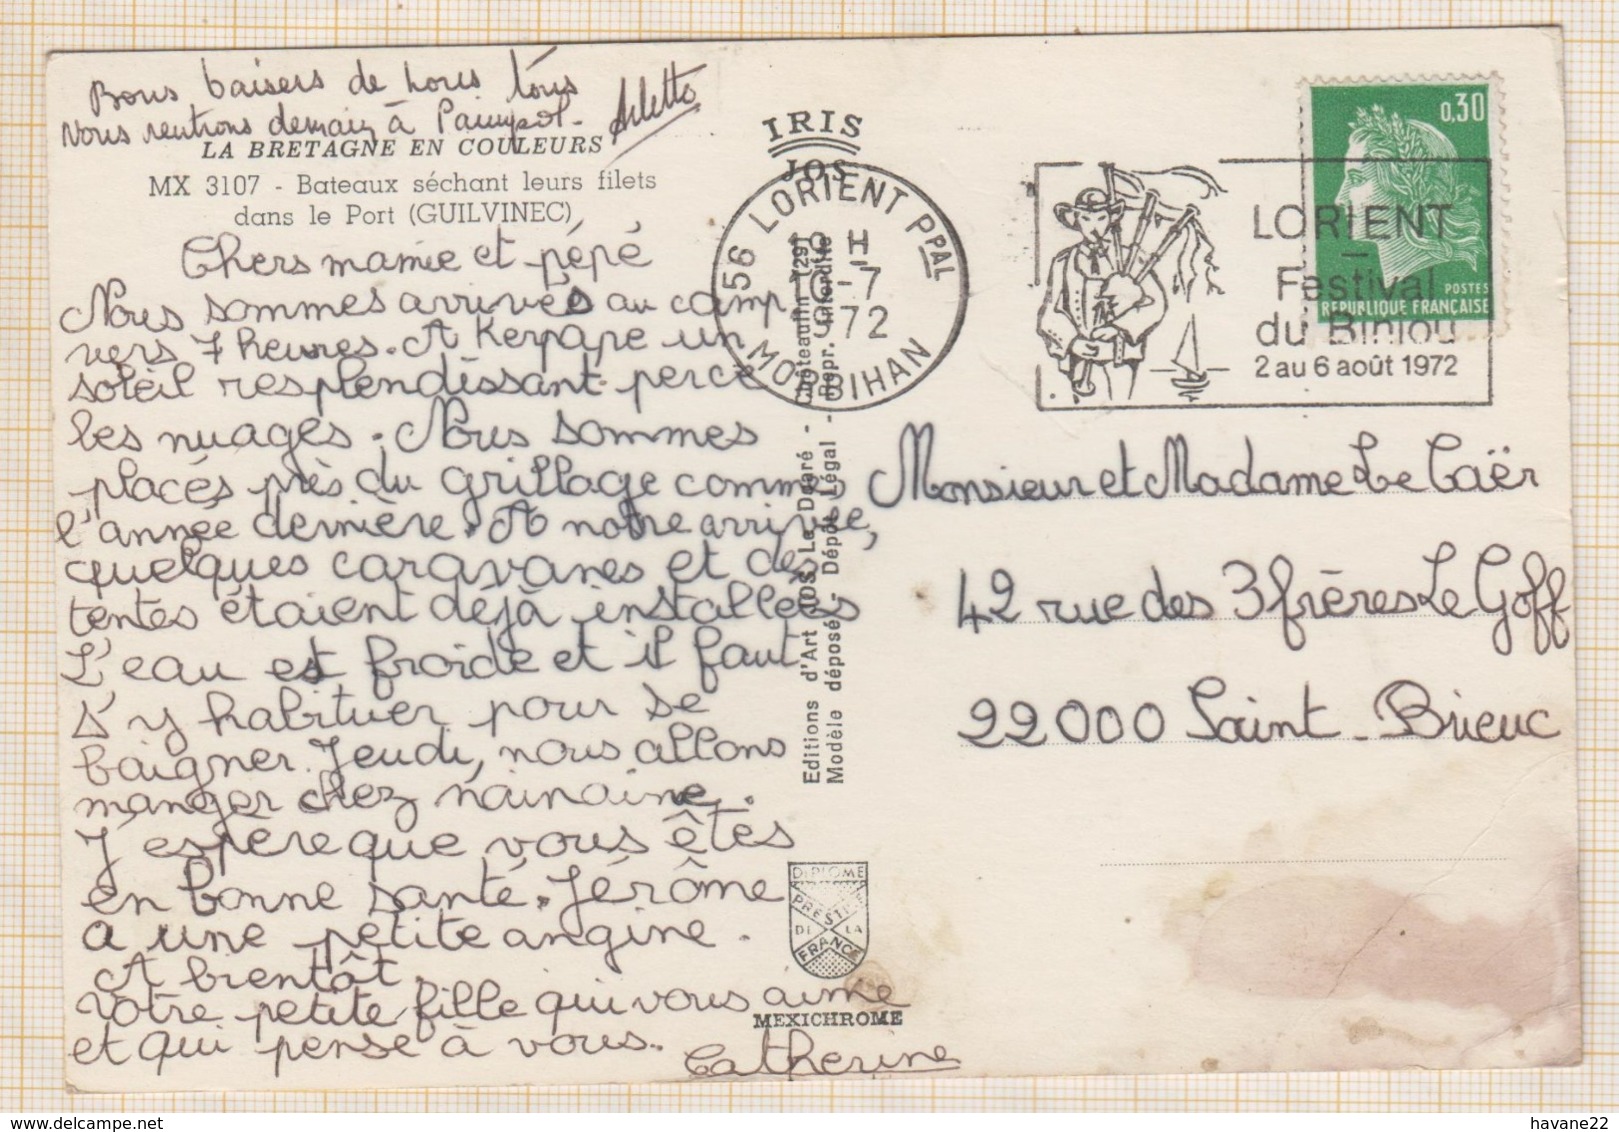 Bons baisers de nous tous
Nous rentrons demain à Paimpol.
Arlette
LA BRETAGNE EN COULEURS
MX 3107 - Bateaux séchant leurs filets
dans le Port (GUILVINEC)
Chers mamie et pépé
Nous sommes arrivés au camp
vers 7 heures. A Kerpape un
soleil resplendissant perce
les nuages. Nous sommes
placés près du grillage comme
l'année dernière. A notre arrivée,
quelques caravanes et des
tentes étaient déjà installées
L'eau est froide et il faut
s'y habituer pour se
baigner. Jeudi, nous allons
manger chez nainaine.
J'espère que vous êtes
en bonne santé. Jérôme
a une petite angine.
A bientôt
Votre petite fille qui vous aime
et qui pense à vous.
Catherine
IRIS
JOS
Editions d'Art JOS Le Doaré - Châteaulin (29)
Modèle déposé - Dépôt Légal - Repr. interdite
DIPLOME
PRESTIGE
DE LA
FRANCE
MEXICHROME
56 LORIENT PPAL
H
-7
1972
MORBIHAN
LORIENT
Festival
du Biniou
2 au 6 août 1972
0,30
POSTES
REPUBLIQUE FRANÇAISE
Monsieur et Madame Le Caër
42 rue des 3 frères Le Goff
22000 Saint-Brieuc
havane22